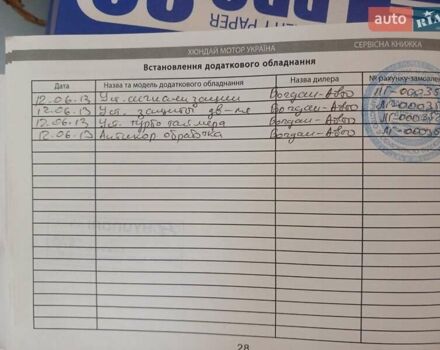 PAPER
auto RIA
ХЮНДАЙ МОТОР УКРАЇНА СЕРВІСНА КНИЖКА
Встановлення додаткового обладнання
Дата Назва та модель додаткового обладнання Назва дилера № рахунку-замовле
12.06.13 Уст. сигнализации Богдан-Авто ЛГ-00035
12.06.13 Уст. защиты дв-ля Богдан-Авто ЛГ-00035
12.06.13 Уст. турботаймера Богдан-Авто ЛГ-00035
12.06.13 Антикор обработка Богдан-Авто ЛГ-00035
28